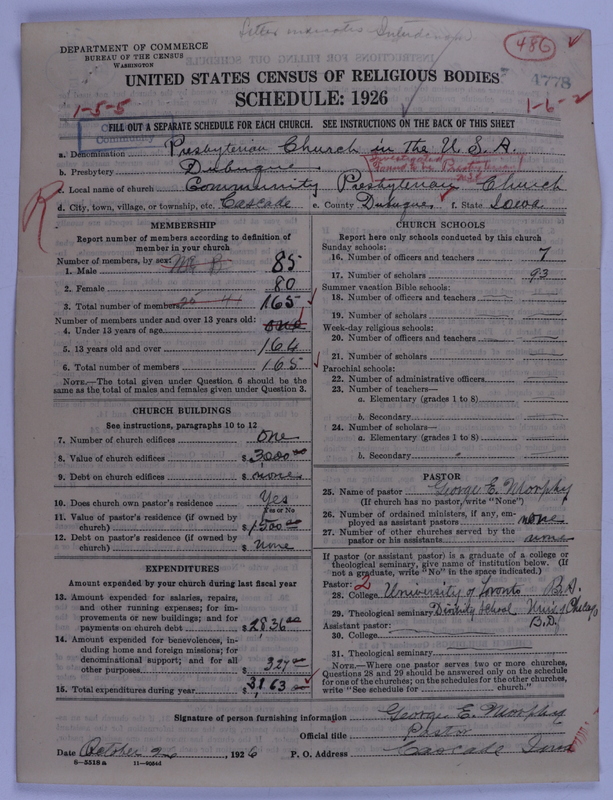 DEPARTMENT OF COMMERCE
BUREAU OF THE CENSUS
WASHINGTON
486
4778
UNITED STATES CENSUS OF RELIGIOUS BODIES
SCHEDULE: 1926
1-5-5
1-6-2
FILL OUT A SEPARATE SCHEDULE FOR EACH CHURCH. SEE INSTRUCTIONS ON THE BACK OF THIS SHEET
Community
a. Denomination Presbyterian Church in the U.S.A.
b. Presbytery Dubuque
Investigated
c. Local name of church Community Presbyterian Church
d. City, town, village, or township, etc. Cascade e. County Dubuque f. State Iowa
R
MEMBERSHIP
Report number of members according to definition of member in your church
Number of members, by sex:
1. Male 85
2. Female 80
3. Total number of members 165
Number of members under and over 13 years old:
4. Under 13 years of age one
5. 13 years old and over 164
6. Total number of members 165
NOTE.—The total given under Question 6 should be the same as the total of males and females given under Question 3.
CHURCH BUILDINGS
See instructions, paragraphs 10 to 12
7. Number of church edifices One
8. Value of church edifices $3000.00
9. Debt on church edifices $ none
10. Does church own pastor's residence Yes
Yes or No
11. Value of pastor's residence (if owned by church) $1500.00
12. Debt on pastor's residence (if owned by church) $ None
EXPENDITURES
Amount expended by your church during last fiscal year
13. Amount expended for salaries, repairs, and other running expenses; for improvements or new buildings; and for payments on church debt $2836.00
14. Amount expended for benevolences, including home and foreign missions; for denominational support; and for all other purposes $327.00
15. Total expenditures during year $3163.00
CHURCH SCHOOLS
Report here only schools conducted by this church
Sunday schools:
16. Number of officers and teachers 7
17. Number of scholars 93
Summer vacation Bible schools:
18. Number of officers and teachers
19. Number of scholars
Week-day religious schools:
20. Number of officers and teachers
21. Number of scholars
Parochial schools:
22. Number of administrative officers
23. Number of teachers—
a. Elementary (grades 1 to 8)
b. Secondary
24. Number of scholars—
a. Elementary (grades 1 to 8)
b. Secondary
PASTOR
25. Name of pastor George E. Morphy
(If church has no pastor, write "None")
26. Number of ordained ministers, if any, employed as assistant pastors none
27. Number of other churches served by the pastor or his assistants none
If pastor (or assistant pastor) is a graduate of a college or theological seminary, give name of institution below. (If not a graduate, write "No" in the space indicated.)
Pastor: 2
28. College University of Toronto B.A.
29. Theological seminary Divinity School Univ. of Chicago
Assistant pastor: B.D.
30. College
31. Theological seminary
NOTE.—Where one pastor serves two or more churches, Questions 28 and 29 should be answered only on the schedule for one of the churches; on the schedules for the other churches, write "See schedule for ........ church."
Signature of person furnishing information George E. Morphy
Official title Pastor
Date October 26, 1926 P. O. Address Cascade Iowa
8-5518a 11-9064d